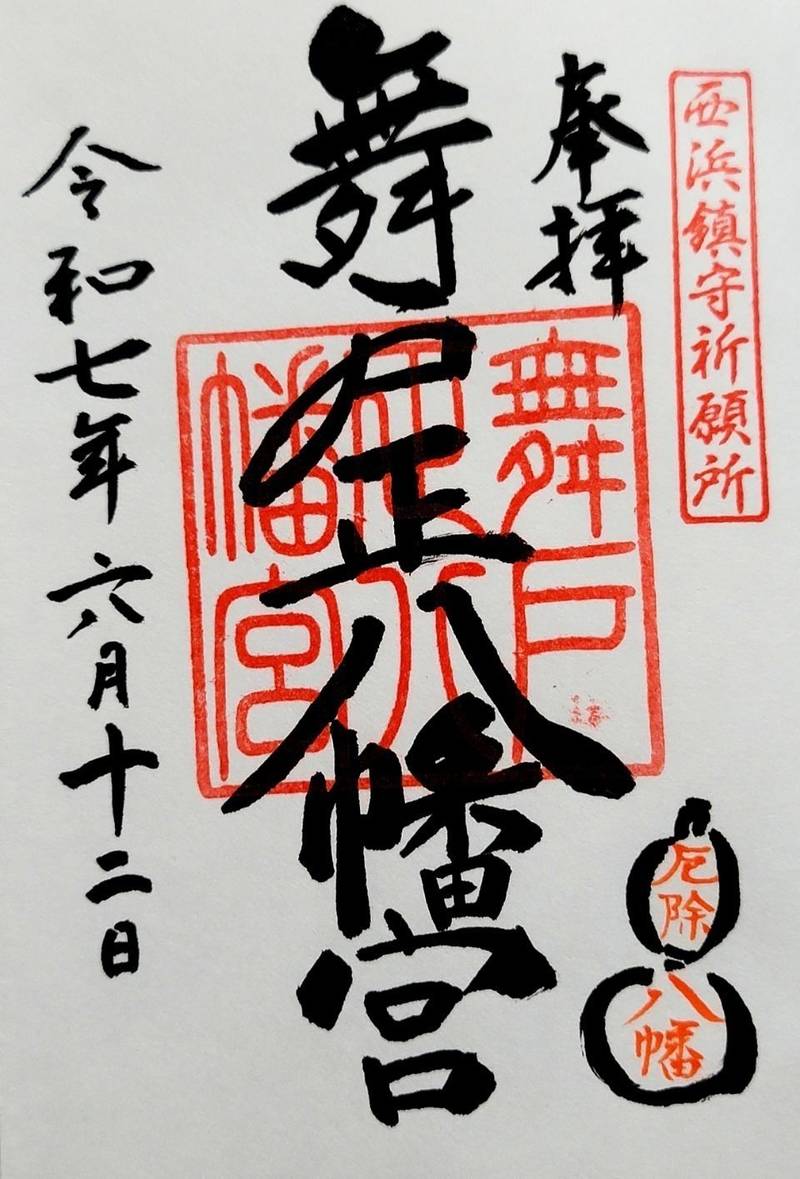 西浜鎮守祈願所
奉拝
舞戸正八幡宮
舞戸正八幡宮
令和七年六月十二日
厄除
八幡